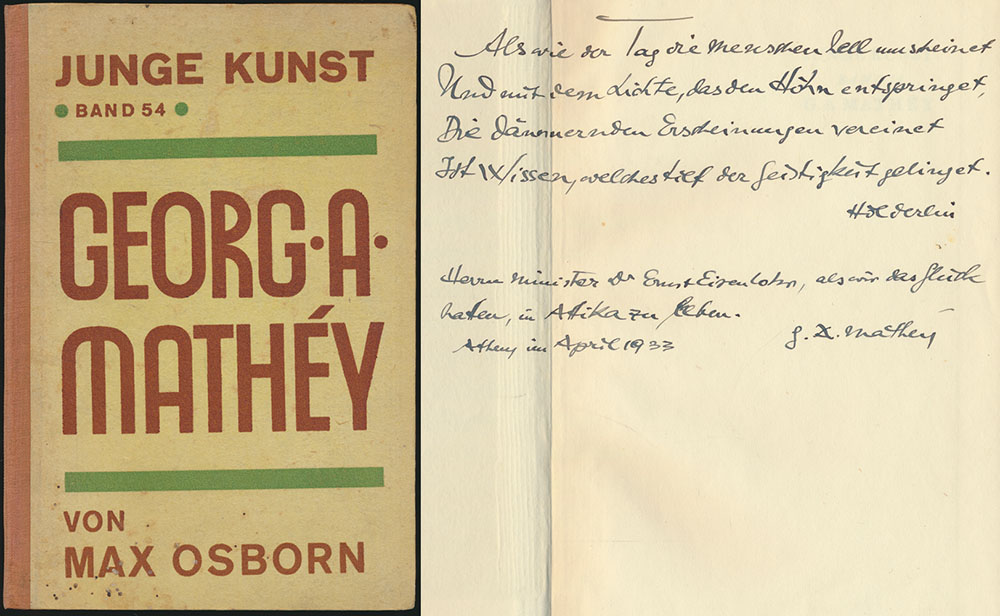 JUNGE KUNST
• BAND 54 •
GEORG·A·
MATHÉY
VON
MAX OSBORN
Als wie der Tag die Menschen hell umscheinet
Und mit dem Lichte, das den Höhn entspringet,
Die dämmernden Erscheinungen vereinet
Ist Wissen, welches tief der Geistigkeit gelinget.
Hölderlin
Herrn Minister Dr Ernst Eisenlohr, als wir das Glück
hatten, in Attika zu leben.
Athen im April 1933
G. A. Mathéy